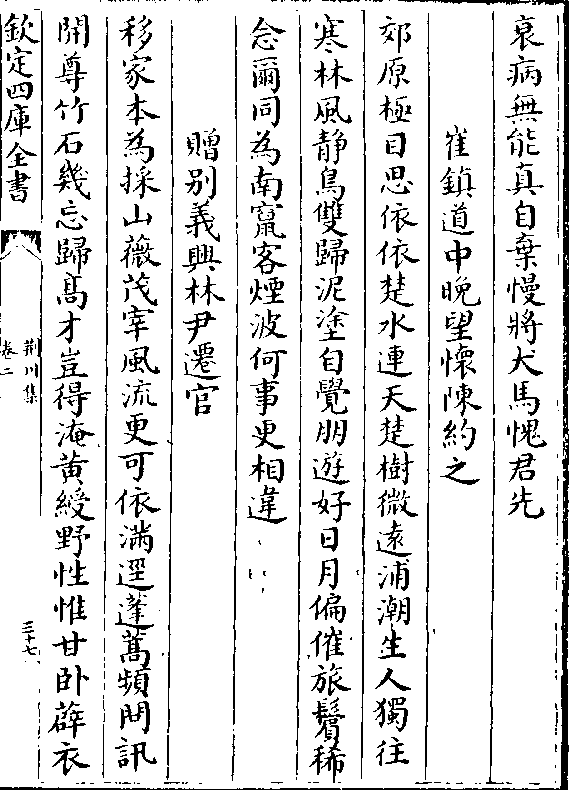 衰病無能真自棄慢將犬馬愧君先
崔鎮道中晚望懷陳約之
郊原極目思依依楚水連天楚樹微遠浦潮生人獨往
寒林風静鳥雙歸泥塗自覺朋遊好日月偏催旅鬢稀
念爾同為南竄客煙波何事更相違
贈别義興林尹遷官
移家本為採山薇茂宰風流更可依滿逕蓬蒿頻問訊
開尊竹石幾忘歸髙才豈得淹黄綬野性惟甘卧薜衣
欽定四庫全書
荆川集
卷二
三十七